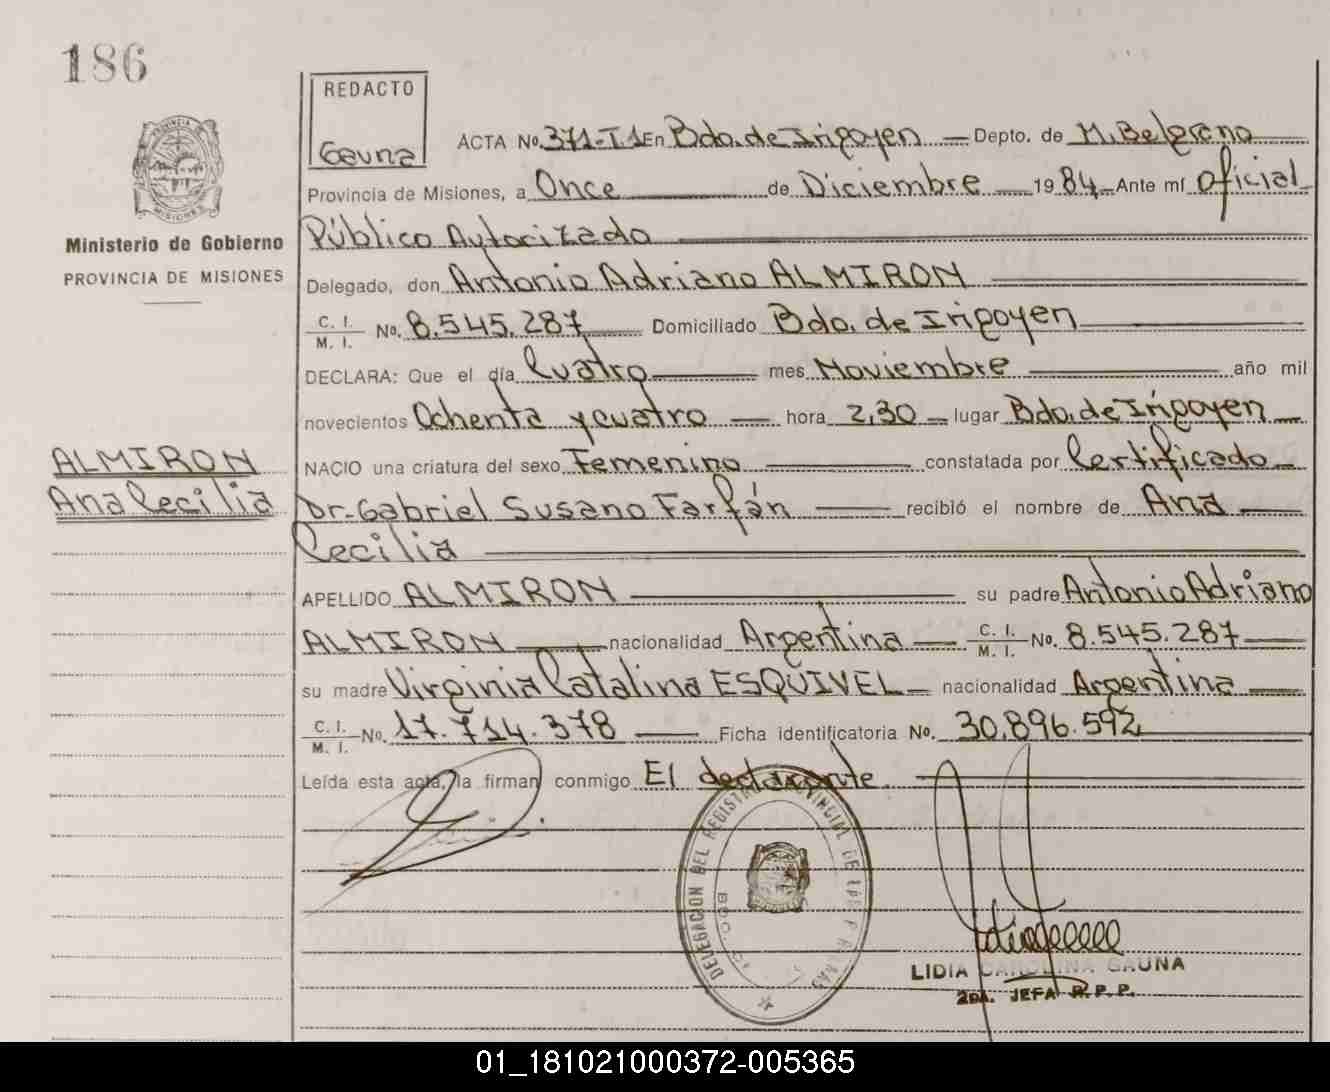 186
REDACTO
Gauna
PROVINCIA
MISIONES
Ministerio de Gobierno
PROVINCIA DE MISIONES
ACTA No. 371-T1 En Bdo. de Irigoyen Depto. de M. Belgrano
Provincia de Misiones, a Once de Diciembre 1984 Ante mí Oficial
Público Autorizado
Delegado, don Antonio Adriano ALMIRON
C. I.
M. I. No. 8.545.287 Domiciliado Bdo. de Irigoyen
DECLARA: Que el día Cuatro mes Noviembre año mil
novecientos Ochenta y cuatro hora 2,30 lugar Bdo. de Irigoyen
ALMIRON
Ana Cecilia
NACIO una criatura del sexo Femenino constatada por Certificado
Dr. Gabriel Susano Farfán recibió el nombre de Ana
Cecilia
APELLIDO ALMIRON su padre Antonio Adriano
ALMIRON nacionalidad Argentina C. I.
M. I. No. 8.545.287
su madre Virginia Catalina ESQUIVEL nacionalidad Argentina
C. I.
M. I. No. 17.714.378 Ficha identificatoria No. 30.896.592
Leída esta acta, la firman conmigo El declarante
DELEGACION DEL REGISTRO PROVINCIAL DE LAS PERSONAS
LIDIA CAROLINA GAUNA
2da. JEFA R.P.P.
01_181021000372-005365